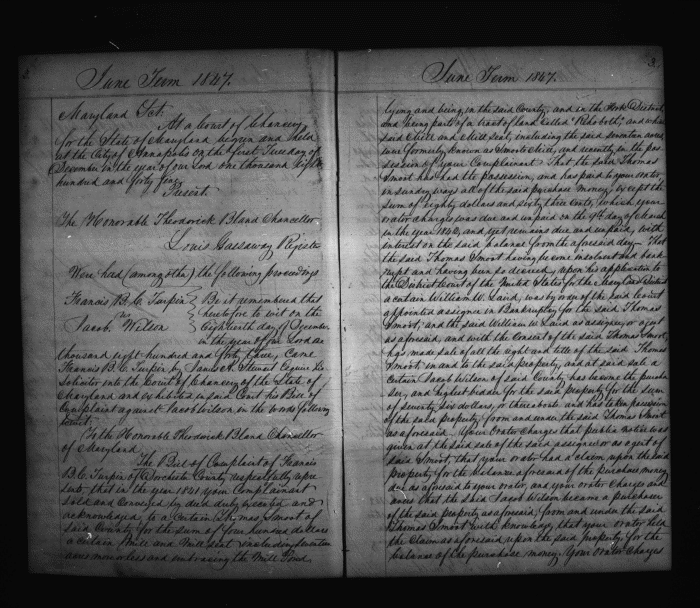 2
June Term 1847.
Maryland Sct:
At a Court of Chancery
for the State of Maryland begun and held
at the City of Annapolis on the first Tuesday of
December in the year of our Lord one thousand eight
hundred and forty five,
Present
The Honorable Theodorick Bland Chancellor
Louis Gassaway Register
Were held (among other) the following proceedings
Francis B. C. Turpin } Be it remembered that
vs } heretofore to wit on the
Jacob Wilson } eighteenth day of December
in the year of our Lord one
thousand eight hundred and forty three, came
Francis B. C. Turpin by James A. Stewart Esquire his
Solicitor into the Court of Chancery of the State of
Maryland and exhibited in said Court his Bill of
Complaint against Jacob Wilson in the words following
towit:
To the Honorable Theodorick Bland Chancellor
of Maryland
The Bill of Complaint of Francis
B. C. Turpin of Dorchester County respectfully repre
sents, that in the year 1841 your Complainant
sold and conveyed by deed duly executed and
acknowledged to a Certain Thomas Smoot of
said County for the sum of four hundred dollars
a certain Mill and Mill seat containing seventeen
acres more or less and embracing the Mill Pond,
3
June Term 1847.
lying and being in the said County, and in the District
and being part of a tract of land called "Rehoboth," and which
said Mill and Mill seat, including the said seventeen acres
were formerly known as Smoots Mill, and recently in the pos
session of your Complainant. That the said Thomas
Smoot has had the possession, and has paid to your orator,
in sundry ways all of the said purchase money, except the
sum of eighty dollars and sixty three Cents, which your
orator charges was due and unpaid on the 9th day of March
in the year 1842, and yet remains due and unpaid, with
interest on the said balance from the aforesaid day — That
the said Thomas Smoot having become insolvent and bank
rupt and having been so decreed, upon his application to
the District Court of the United States for the Maryland District
a certain William W. Laird, was by order of the said Court
appointed assignee in Bankruptcy for the said Thomas
Smoot, and the said William W. Laird as assignee, or agent
as aforesaid, and with the Consent of the said Thomas Smoot,
has made sale of all the right and title of the said Thomas
Smoot, in and to the said property, and at said sale a
Certain Jacob Wilson of said County has become the purcha
ser, and highest bidder for the said property for the sum
of seventy six dollars, or thereabouts and has taken possession
of the said property from and under the said Thomas Smoot
as aforesaid. Your Orator Charges that public notice was
given at the said sale of the said assignee or as agent of
said Smoot, that your orator had a claim upon the said
property for the balance aforesaid of the purchase money
due as aforesaid to your orator, and your orator Charges and
avers that the said Jacob Wilson became a purchaser
of the said property as aforesaid, from and under the said
Thomas Smoot with knowledge, that your orator held
the Claim as aforesaid upon the said property for the
balance of the purchase money. Your Orator Charges